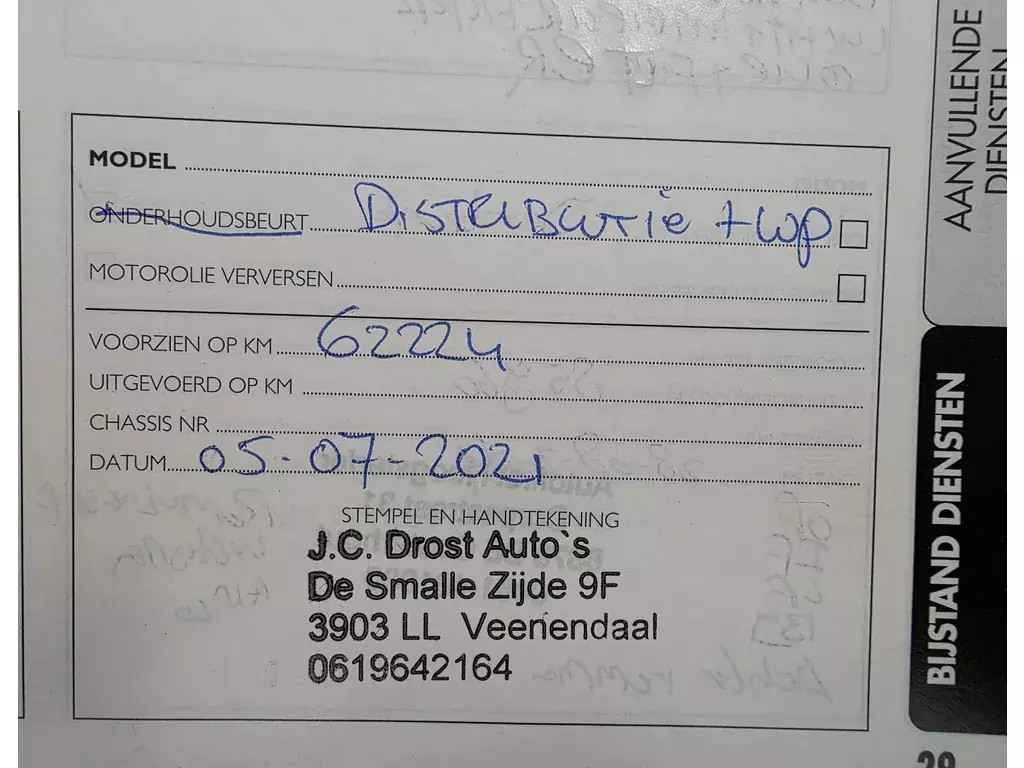 MODEL
ONDERHOUDSBEURT Distributie + wp
MOTOROLIE VERVERSEN
VOORZIEN OP KM 62224
UITGEVOERD OP KM
CHASSIS NR
DATUM 05-07-2021
STEMPEL EN HANDTEKENING
J.C. Drost Auto`s
De Smalle Zijde 9F
3903 LL Veenendaal
0619642164
AANVULLENDE
DIENSTEN
BIJSTAND DIENSTEN